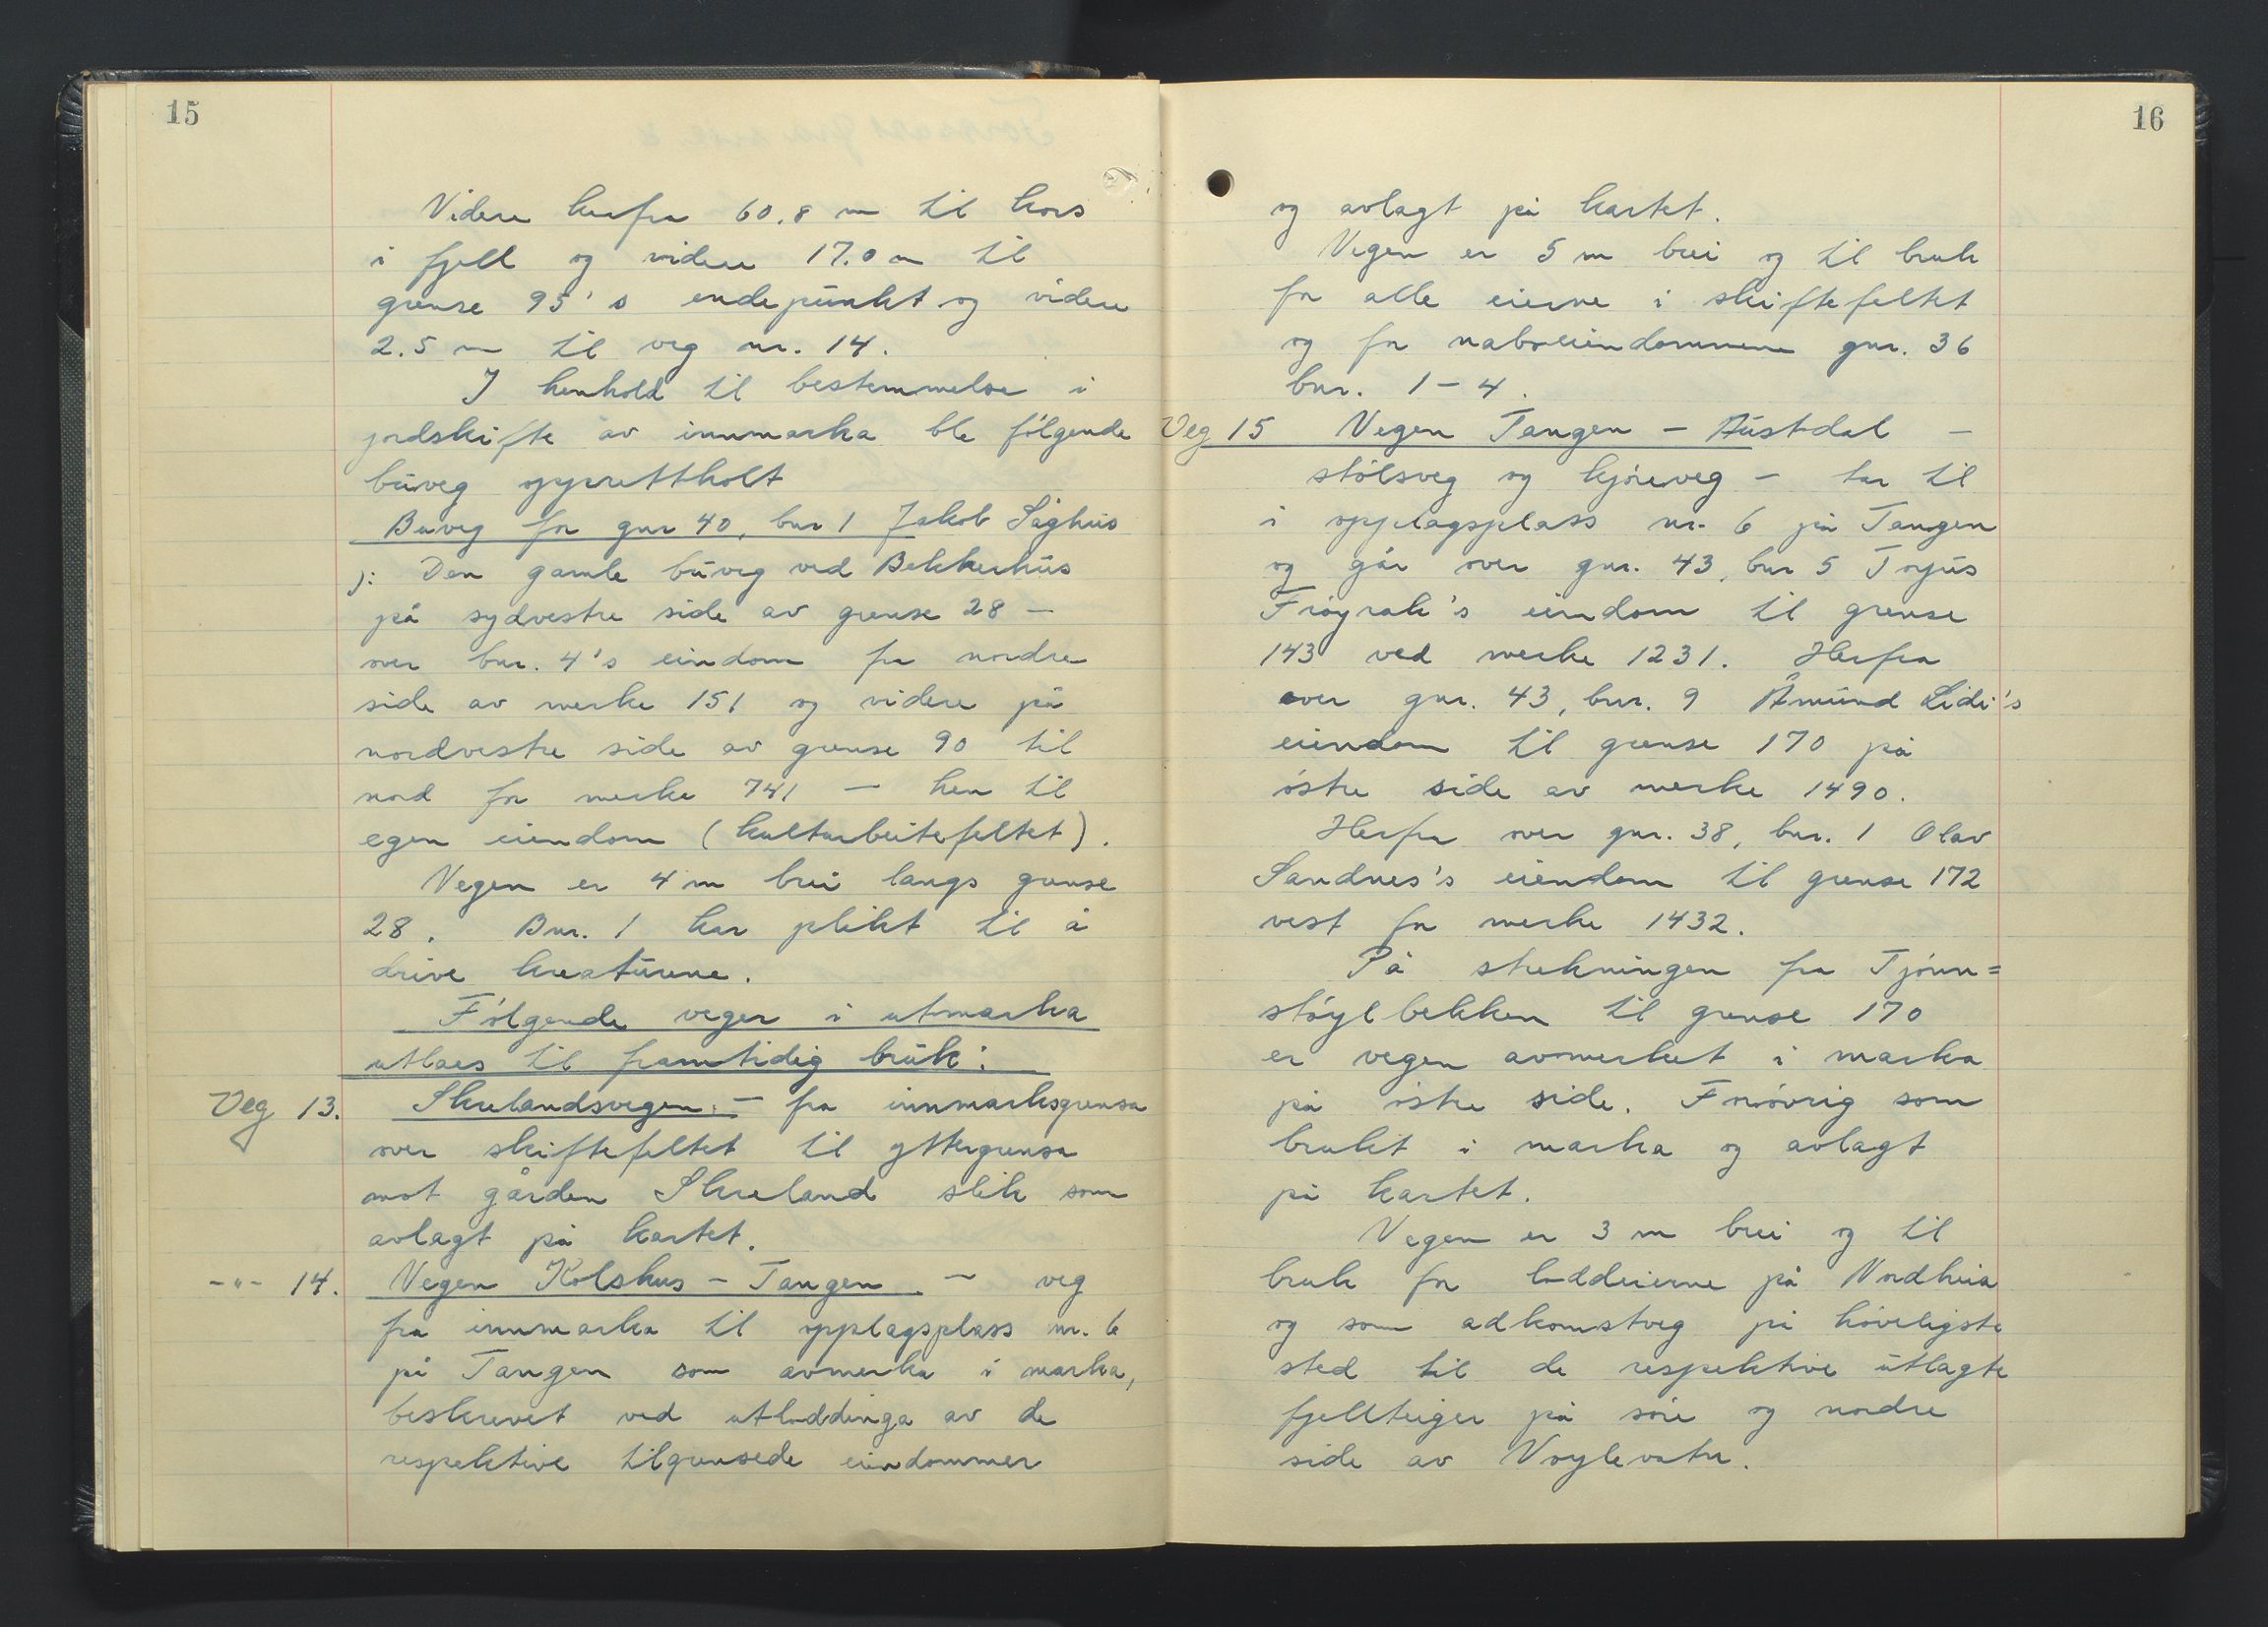 15
Videre herfra 60.8 m til kors
i fjell og videre 17.0 m til
grense 95's endepunkt og videre
2.5 m til veg nr. 14.
I henhold til bestemmelse i
jordskifte av innmarka ble følgende
buveg opprettholt
Buveg for gnr 40, bnr 1 Jakob Såghus
ɔ: Den gamle buveg ved Bekkerhus
på sydvestre side av grense 28 -
over bnr. 4's eindom fra nordre
side av merke 151 og videre på
nordvestre side av grense 90 til
nord for merke 741 - hen til
egen eiendom (kulturbeitefeltet).
Vegen er 4 m brei langs grense
28. Bnr. 1 har plikt til å
drive kreaturene.
Følgende veger i utmarka
utlaes til framtidig bruk:
Veg 13. Skrelandsvegen. - fra innmarksgrensa
over skiftefeltet til yttergrensa
mot gården Skreland slik som
avlagt på kartet.
-"- 14. Vegen Kolshus - Tangen - veg
fra innmarka til opplagsplass nr. 6
på Tangen som avmerka i marka,
beskrevet ved utloddinga av de
respektive tilgrensede eindommer
16
og avlagt på kartet.
Vegen er 5 m brei og til bruk
for alle eierne i skiftefeltet
og for naboeiendommene gnr. 36
bnr. 1 - 4.
Veg 15 Vegen Tangen - Austdal -
stølsveg og kjøreveg - tar til
i opplagsplass nr. 6 på Tangen
og går over gnr. 43, bnr 5 Torjus
Frøyrak's eindom til grense
143 ved merke 1231. Herfra
over gnr. 43, bnr. 9 Åmund Lidi's
eiendom til grense 170 på
østre side av merke 1490.
Herfra over gnr. 38, bnr. 1 Olav
Sandnes's eiendom til grense 172
vest for merke 1432.
På strekningen fra Tjønn=
støylbekken til grense 170
er vegen avmerket i marka
på østre side. Forøvrig som
brukt i marka og avlagt
på kartet.
Vegen er 3 m brei og til
bruk for loddeierne på Nordheia
og som adkomstveg på høveligste
sted til de respektive utlagte
fjellteiger på søre og nordre
side av Voylevatn.